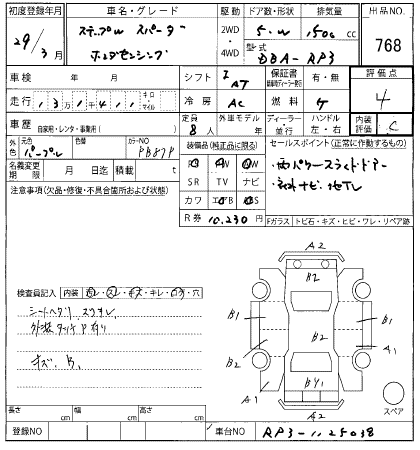 初度登録年月 車名・グレード 駆動 ドア数・形状 排気量 出品NO
29年 3月 ステップW スパーダ ホンダセンシング 2WD・4WD 5・W 1500cc 768
型式 DBA-RP3
車検 年 月 シフト I AT 保証書 有・無 評価点 4
走行 キロ マイル 冷房 AC 燃料 ガ ハンドル 左・右
車歴 自家用・レンタ・事業用( ) 定員 8人 外車モデル年 ディーラー 並行 内装評価 C
外色 元色 パープル カラーNO PB87P 装備品(純正品に限る) セールスポイント(正常に作動するもの)
名義変更期限 月 日迄 積載 t PS AW PW 両パワースライドドアー
注意事項(欠品・修復・不具合箇所および状態) SR TV ナビ ナビ、地TV
カワ エアB ABS
R券 10,230円 Fガラス トビ石・キズ・ヒビ・ワレ・リペア跡
A2
B2
検査員記入 内装 ヨレ・スレ・キズ・キレ・コゲ・穴
シートヘタリ スリキレ
外装タッチP有り
キズ、B、
B1 B1
B2 B2 A1
A1 BY1
A2 スペア
長さ cm 幅 cm 高さ cm
登録NO 車台NO RP3-1125038